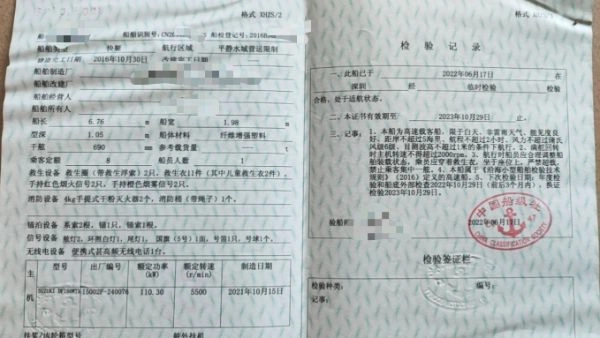 格式 XHZS/2
船舶识别号: CN20
船检登记号: 2016B
船舶类型 快艇 航行区域 平静水域营运限制
建造完工日期 2016年10月30日 改建完工日期
船舶制造厂
船舶改建厂
船舶经营人
船舶所有人
船长 6.76 m 船宽 1.98 m
型深 1.05 m 船体材料 纤维增强塑料
干舷 690 mm 参考载货量 t
乘客定额 8 船员人数 1
救生设备 救生圈(带救生浮索)2个, 救生衣11件(其中儿童救生衣2件),
手持红色烟火信号2只, 手持橙色烟雾信号2只。
消防设备 4kg手提式干粉灭火器2个, 消防桶(带绳子)1个。
锚泊设备 系索2根, 锚1只, 锚索1根。
信号设备 舷灯2, 环照白灯1, 尾灯1, 国旗(5号)1面, 号笛1只, 号球1个。
无线电设备 便携式甚高频无线电话1台。
主机
型号 出厂编号 额定功率(kW) 额定转速(r/min) 制造日期
SUZUKI 15002F-240076 110.30 5500 2021年10月15日
挂桨/齿轮箱型号 额外挂机
格式
检验记录
一、此船已于 2022年06月17日 在
深圳 经 临时检验 检验
合格, 处于适航状态。
二、本证书有效期至 2023年10月29日 止。
三、记事: 1、本船为高速载客船, 限于白天、非雷雨天气、能见度良
好、距岸不超过5海里、航程不超过2小时、风力不超过蒲氏
风级6级、目测波高不超过1米的条件下航行。2、满舵回转
时主机转速不得超过2000rpm。3、航行时船员应合理调整船
舶装载状态, 乘员应穿着救生衣, 坐于座位上, 严禁超载,
禁止乘客集中一舷。4、本船属于《沿海小型船舶检验技术
规则》(2016)定义的高速船。5、下次检验日期: 年度检
验和船底外部检查2022年10月29日(前后3个月内), 换证
检验2023年10月29日。
验船师 2022年06月17日
中国船级社
CHINA CLASSIFICATION SOCIETY
检验签证栏
检验种类: 编号:
记事: